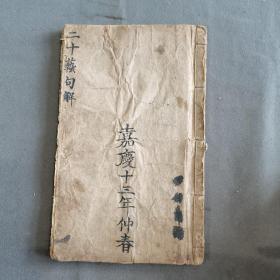 二十藝句解
嘉慶十三年仲春